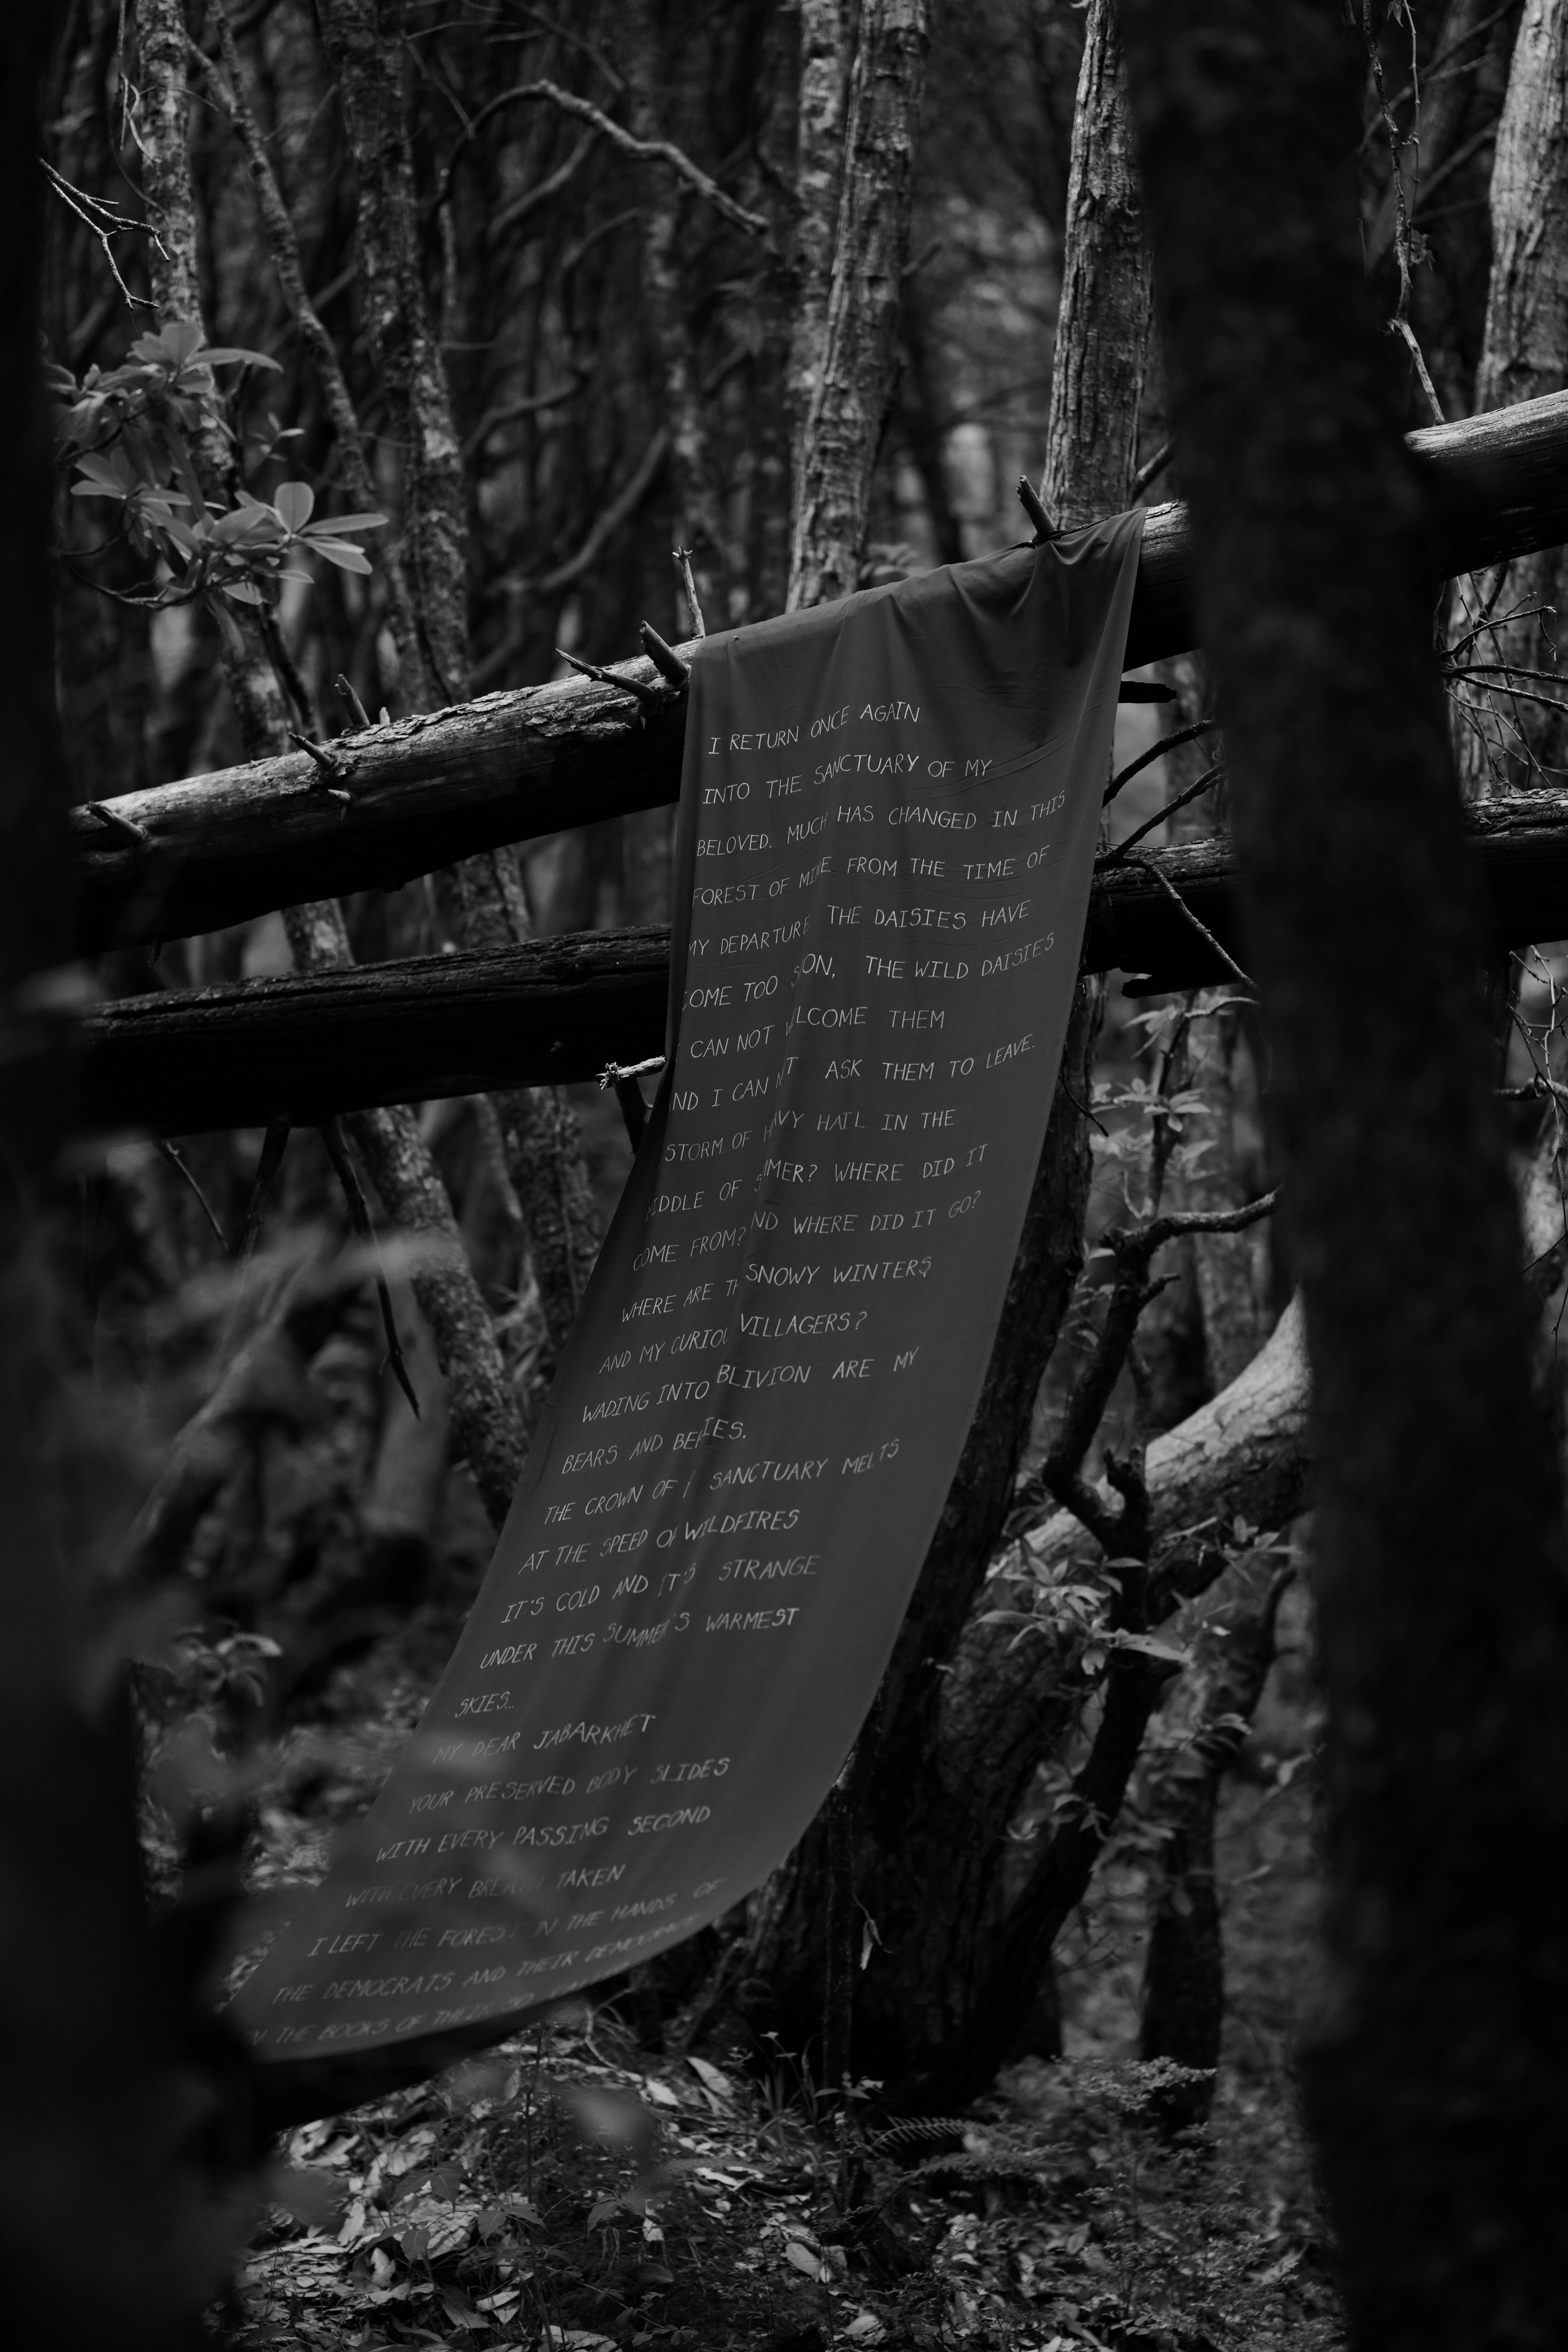 I RETURN ONCE AGAIN
INTO THE SANCTUARY OF MY
BELOVED. MUCH HAS CHANGED IN THIS
FOREST OF MINE FROM THE TIME OF
MY DEPARTURE THE DAISIES HAVE
COME TOO SOON, THE WILD DAISIES
CAN NOT WELCOME THEM
AND I CAN NOT ASK THEM TO LEAVE.
STORM OF HEAVY HAIL IN THE
MIDDLE OF SUMMER? WHERE DID IT
COME FROM? AND WHERE DID IT GO?
WHERE ARE THE SNOWY WINTERS
AND MY CURIOUS VILLAGERS?
WADING INTO OBLIVION ARE MY
BEARS AND BERRIES.
THE CROWN OF MY SANCTUARY MELTS
AT THE SPEED OF WILDFIRES
IT'S COLD AND IT'S STRANGE
UNDER THIS SUMMER'S WARMEST
SKIES...
MY DEAR JABARKHET
YOUR PRESERVED BODY SLIDES
WITH EVERY PASSING SECOND
WITH EVERY BREATH TAKEN
I LEFT THE FOREST IN THE HANDS OF
THE DEMOCRATS AND THEIR DEMOCRACY
IN THE BOOKS OF THEIR SO